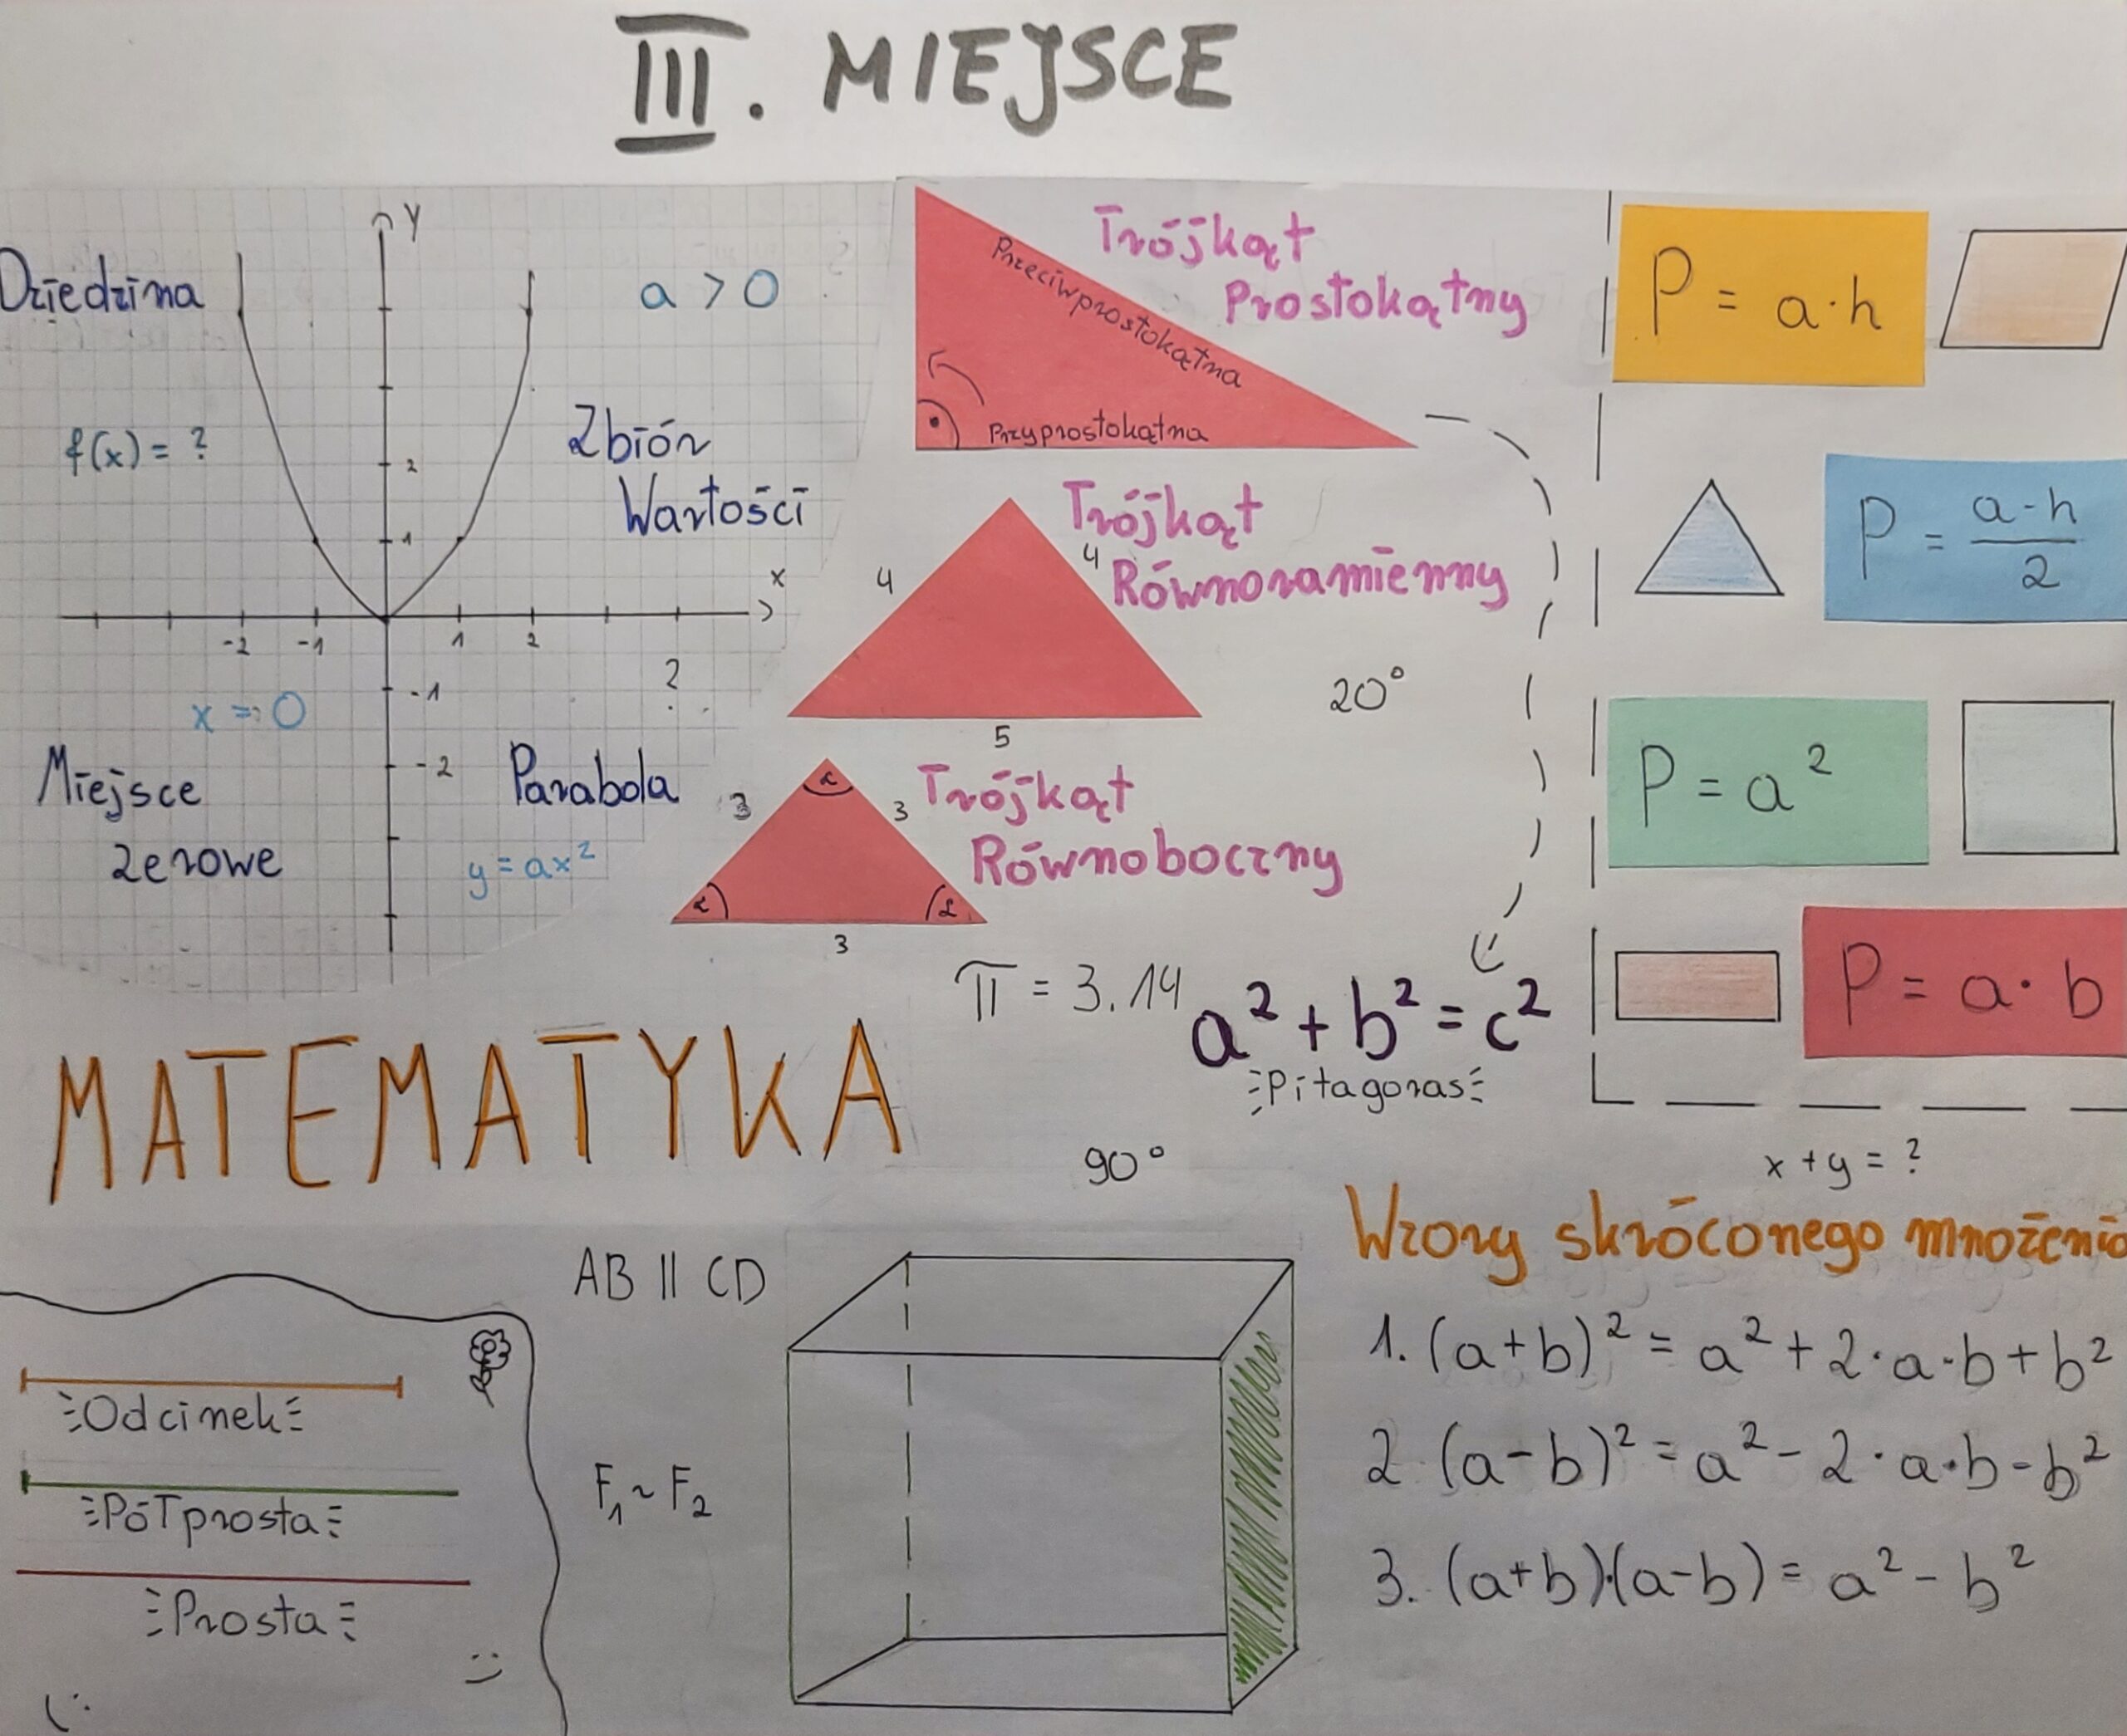 III. MIEJSCE
Y
Dziedzina
a > 0
f(x) = ?
Zbiór
Wartości
2
1
x
-2 -1 1 2
-1
?
x = 0
-2
Miejsce
zerowe
Parabola
y = ax²
Trójkąt
Prostokątny
Przeciwprostokątna
Przyprostokątna
Trójkąt
Równoramienny
4
4
5
20°
Trójkąt
Równoboczny
3
3
α
α
α
3
π = 3.14
a² + b² = c²
Pitagoras
P = a·h
P = a·h/2
P = a²
P = a·b
MATEMATYKA
90°
x + y = ?
AB || CD
Odcinek
Półprosta
Prosta
F₁ ~ F₂
:)
(:
Wzory skróconego mnożenia
1. (a+b)² = a² + 2·a·b + b²
2. (a-b)² = a² - 2·a·b - b²
3. (a+b)·(a-b) = a² - b²